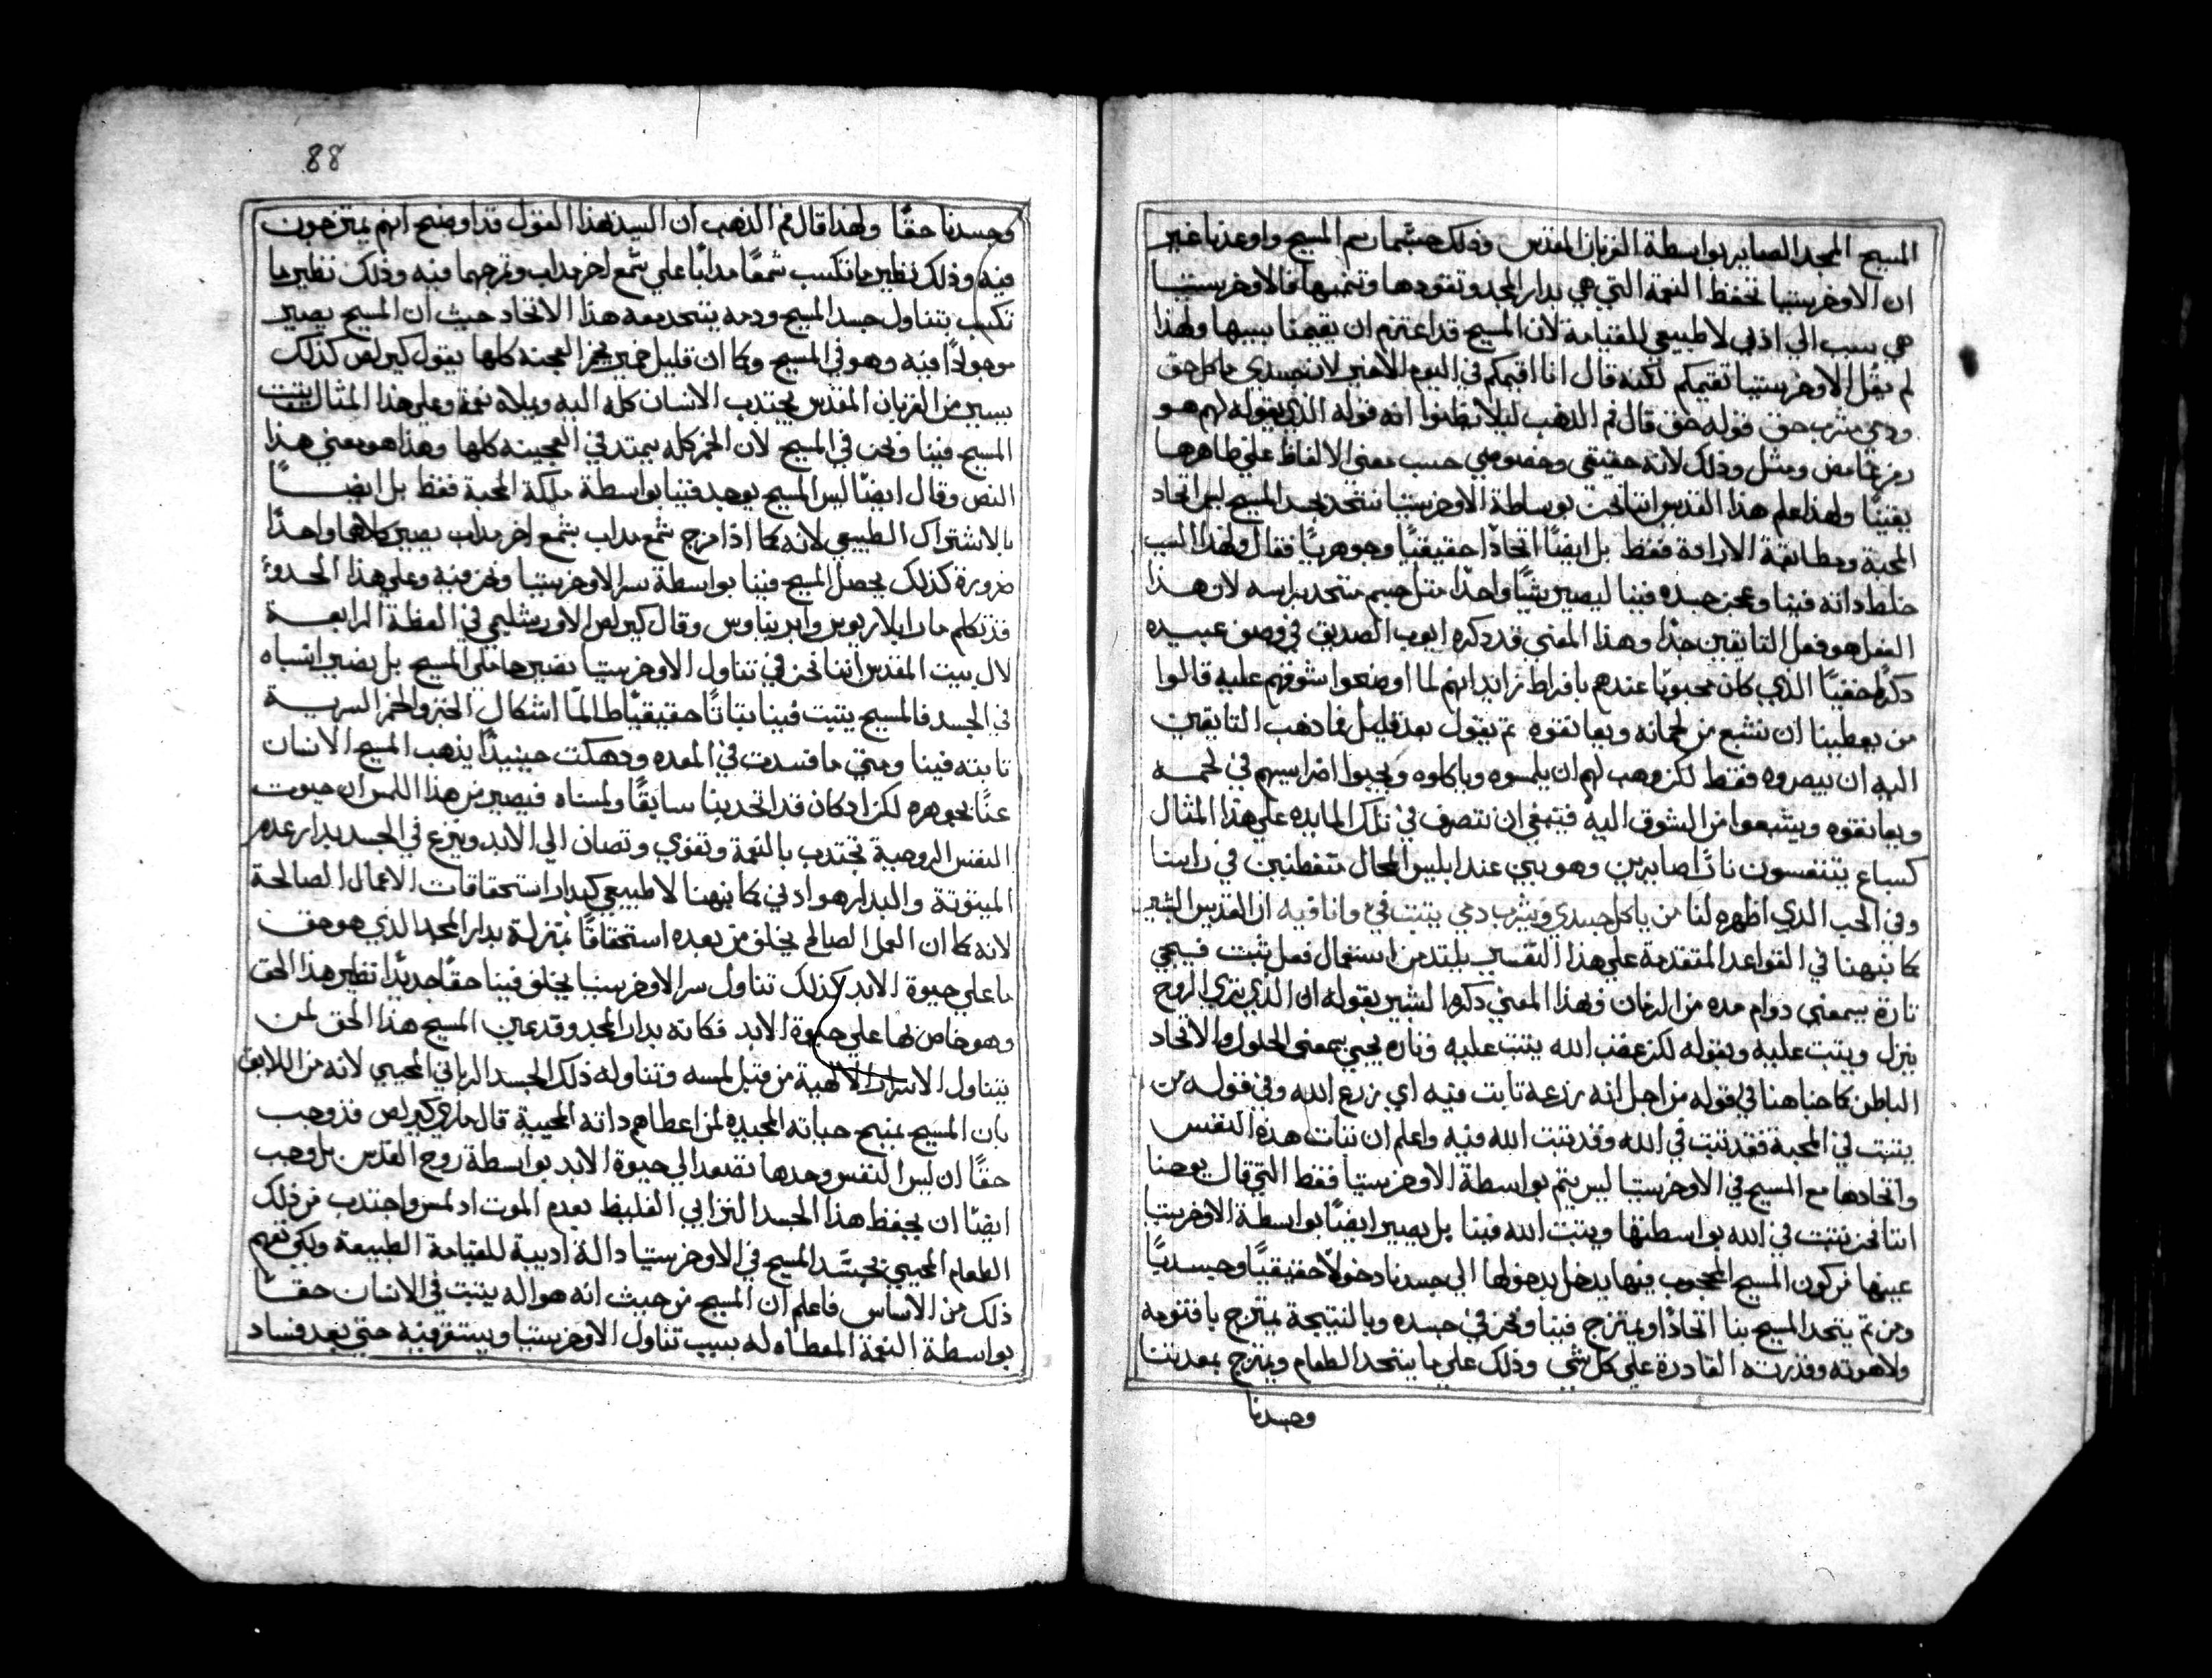 المسيح المجد الصاير بواسطة القربان المقدس وذلك حيثما رسم المسيح واوعدنا غير
ان الاوخرستيا تحفظ النعمة التي هي بدار المجد وتقودها وتنميها فالاوخرستيا
هي سبب الي ادبي لا طبيعي للقيامة لان المسيح قد اعتزم ان يقيمنا بسببها ولهذا
لم يقل الاوخرستيا تقيمكم لكنه قال انا اقيمكم في اليوم الاخير لان جسدي ماكل حق
ودمي مشرب حق قوله حق قال فم الذهب ليلا تظنوا انه قوله الذي يقوله لهم هو
رمز غامض ومثل وذلك لانه حقيقي وخصوصي حسب معني الالفاظ علي ظاهرها
يقينًا ولهذا علم هذا القديس اننا نحن بوساطة الاوخرستيا نتحد بجسد المسيح ليس اتحاد
المحبة ومطابقة الارادة فقط بل ايضًا اتحادًا حقيقيًا وجوهريًا فقال ولهذا السبب
خلط داته فينا وعجن جسده فينا ليصير شيًا واحدًا مثل جسم متحد براسه لان هذا
الفعل هو فعل التايقين جدًا وهذا المعني قد دكره ايوب الصديق في وصف عبيده
دكرًا خفيًا الذي كان محبوبًا عندهم بافراط زايد انهم لما اوضعوا شوقهم عليه قالوا
من يعطينا ان نشبع من لحمانه ويعانقوه ثم يقول بعد قليل فما دهب التايقين
اليه ان يبصروه فقط لكن وهب لهم ان يلمسوه وياكلوه ويجبوا اضراسهم في لحمه
ويعانقوه ويشبعوا من الشوق اليه فينبغي ان نتصرف في تلك المايده علي هذا المثال
كسباع يتنفسون نارًا صايرين مرهوبين عند ابليس المحال متفطنين في راسنا
وفي الحب الذي اظهره لنا من ياكل جسدي ويشرب دمي يتبت في وانا فيه ان القديس البشير
كما نبهنا في القواعد المتقدمة علي هذا التفسير يلتد من استعمال فعل يثبت فيجي
تارة بمعني دوام مده من الزمان وبهذا المعني دكره البشير بقوله ان الذي تري الروح
ينزل ويتبت عليه وبقوله لكن غضب الله يتبت عليه وتاره يجي بمعني الحلول والاتحاد
الباطن كما هنا في قوله من اجل انه زرعه تابت فيه اي زرع الله وفي قوله من
يتبت في المحبة فقد تبت في الله وقد يتبت الله فيه واعلم ان تبات هده النفس
واتحادها مع المسيح في الاوخرستيا ليس يتم بواسطة الاوخرستيا فقط التي قال يوحنا
اننا نحن نتبت في الله بواسطتها ويتبت الله فينا بل يصير ايضًا بواسطة الاوخرستيا
عينها من كون المسيح المحجوب فيها يدخل بدخولها الي جسدنا دخولًا حقيقيًا وجسديًا
ومن ثم يتحد المسيح بنا اتحادًا ويمتزج فينا ونحن في جسده وبالنتيجة يمتزج باقنومه
ولاهوته وقدرته القادرة علي كل شي وذلك علي ما يتحد الطعام ويمتزج بمعدتنا
وجسدنا
88
وجسدنا حقًا ولهذا قال فم الدهب ان السيد بهذا القول قد اوضح انهم يمتزجون
فيه وذلك نظير ما تكسب شمعًا مدابًا علي شمع اخر مداب وتمزجهما فيه وذلك نظير ما
تكسب بتناول جسد المسيح ودمه يتحد معه هذا الاتحاد حيث ان المسيح يصير
موجودًا فيه وهو في المسيح وكما ان قليل خمير يخمر العجنه كلها يقول كيرلص كذلك
يسير من القربان المقدس يجتدب الانسان كله اليه ويملاه نعمة وعلي هذا المثال يتبت
المسيح فينا ونحن في المسيح لان الخمر كله يمتد في العجينه كلها وهذا هو معني هذا
النص وقال ايضًا ليس المسيح يوجد فينا بواسطة ملكة المحبة فقط بل ايضًا
بالاشتراك الطبيعي لانه كما اذا مزج شمع مداب بشمع اخر مداب يصير كلاهما واحدًا
ضرورة كذلك يحصل المسيح فينا بواسطة سر الاوخرستيا ونحن فيه وعلي هذا الحدو
قد تكلم مار ايلاريوس وايريناوس وقال كيرلص الاورشليمي في العظة الرابعة
لال بيت المقدس اننا نحن في تناول الاوخرستيا نصير حاملي المسيح بل نصير انسباه
في الجسد فالمسيح يتبت فينا تباتًا حقيقيًا طالما اشكال الخبز والخمر السرية
تابته فينا ومتي ما فسدت في المعده وهلكت حينيدًا يذهب المسيح الانسان
عنا بجوهره لكن ادكان قد اتحد بنا سابقًا ولمسناه فيصير من هذا اللمس ان حيوت
النفس الروحية تجتدب بالنعمة وتقوي وتصان الي الابد ويزرع في الجسد بدار عدم
الميتوتة والبدار هو ادبي كما نبهنا لا طبيعي كبدار استحقاقات الاعمال الصالحة
لانه كما ان العمل الصالح يخلق من بعده استحقاقًا بمنزلة بدار المجد الذي هو حق
ما علي حيوة الابد كذلك تناول سر الاوخرستيا يخلق فينا حقًا جديدًا نظير هذا الحق
وهو خاص بها علي حيوة الابد فكانه بدار المجد وقد عين المسيح هذا الحق لمن
يتناول الاسرار الالهية من قبل لمسه وتناوله ذلك الجسد الرباني المحيي لانه من اللايق
بان المسيح يمنح حياته المجيده لمن اعطاهم داته المحيية قال ماري كيرلص قد وجب
حقًا ان ليس النفس وحدها تصعد الي حيوة الابد بواسطة روح القدس بل وجب
ايضًا ان يحفظ هذا الجسد الترابي الغليظ بعدم الموت اد لمس واجتدب من ذلك
الطعام المحيي فجسد المسيح في الاوخرستيا دالة ادبية للقيامة الطبيعة ولكي تفهم
ذلك من الاساس فاعلم ان المسيح من حيث انه هو اله يتبت في الانسان حقًا
بواسطة النعمة المعطاه له بسبب تناول الاوخرستيا ويستقر فيه حتي بعد فساد